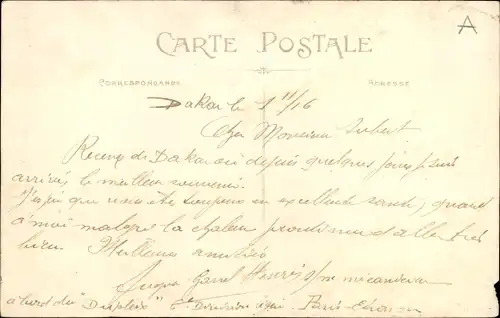 A
CARTE POSTALE
CORRESPONDANCE
ADRESSE
Dakar le 1 11/16
Cher Monsieur
Recevez de Dakar où depuis quelques jours je suis
arrivé, le meilleur souvenir.
J'espère que vous êtes toujours en excellente santé, quand
à moi malgré la chaleur je continue d'aller très
bien. Meilleures amitiés
à bord du "Dupleix" 6e Division